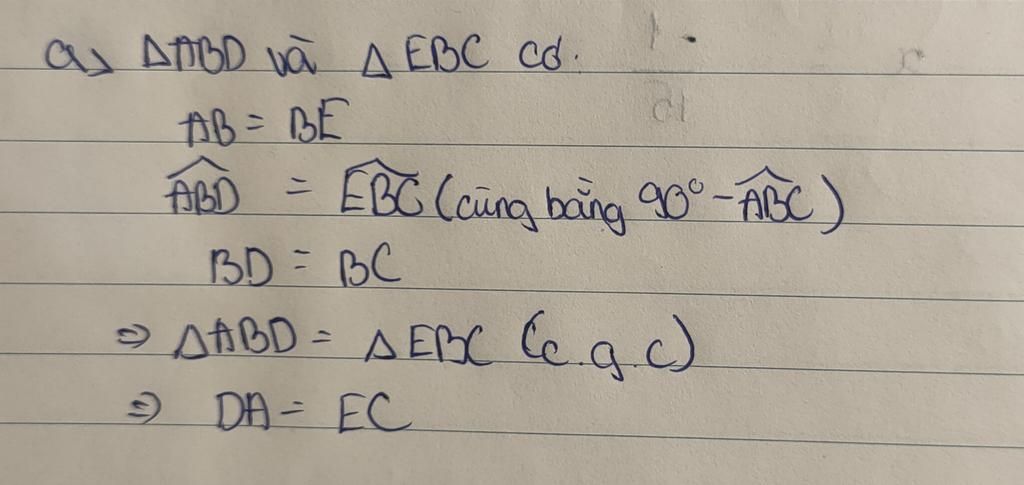 a, ΔABD và ΔEBC có.
AB = BE
\widehat{ABD} = \widehat{EBC} (cùng bằng 90° - \widehat{ABC})
BD = BC
⇒ ΔABD = ΔEBC (c.g.c)
⇒ DA = EC